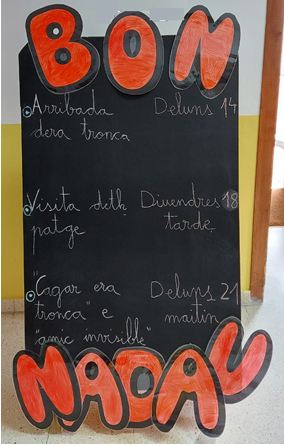 BON
Arribada Deluns 14
dera tronca
Visita deth Divendres 18
patge tarde
"Cagar era Deluns 21
tronca" e maitin
"amic invisible"
NADAU